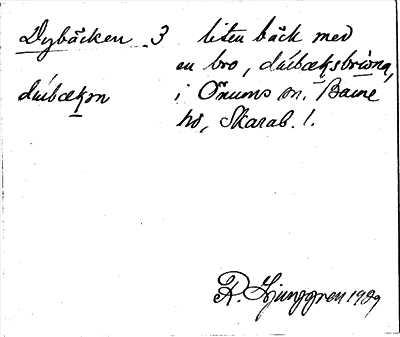 Dybäcken 3 liten bäck med
en bro, dúibæksbrúna,
dúibækn i Önums sn. Barne
hd, Skarab. l.
R. Ljunggren 1929